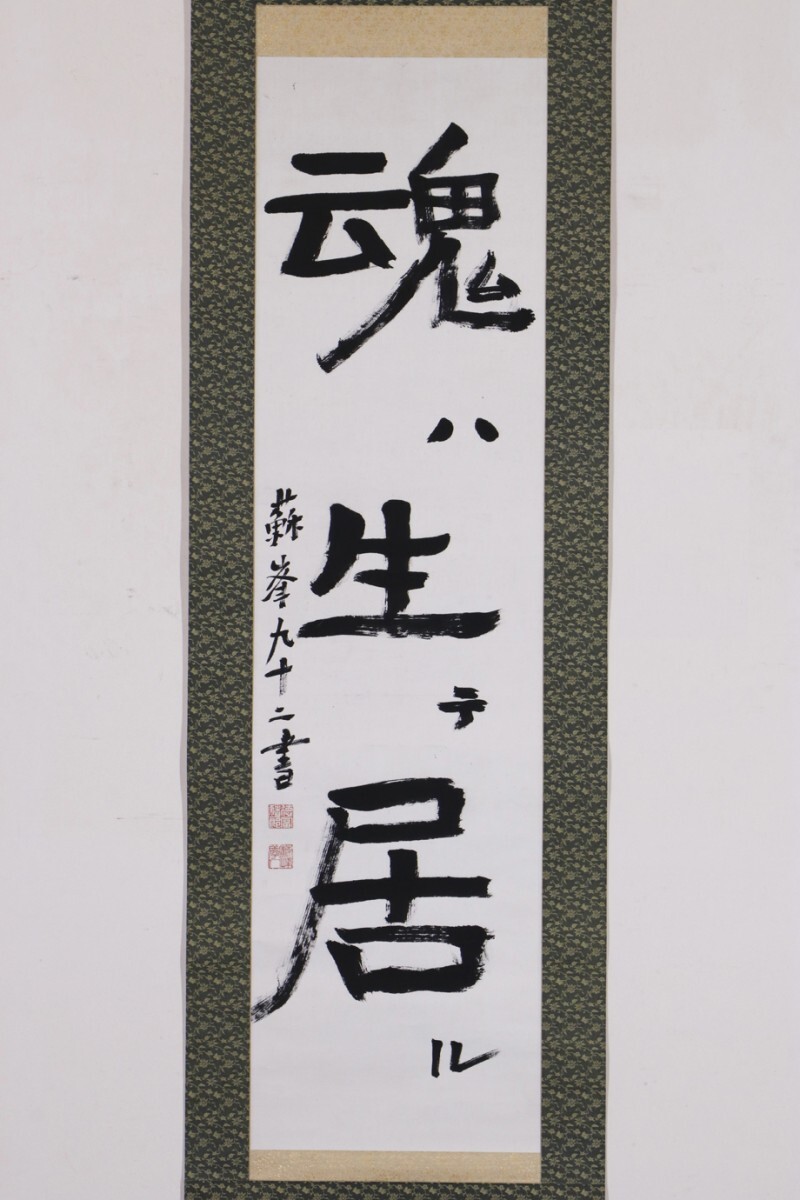 魂ハ生テ居ル
蘇峯九十二書